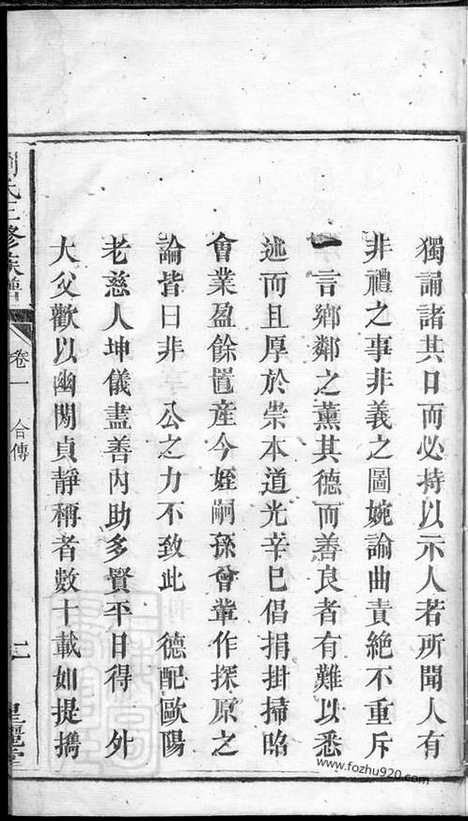 獨誦諸其口而必持以示人若所聞人有
非禮之事非義之圖婉諭曲責絕不重斥
一言鄉鄰之薰其德而善良者有難以悉
述而且厚於崇本道光辛巳倡捐掛掃昭
會業盈餘置產今姪嗣孫曾輩作探原之
論皆曰非　公之力不致此　德配歐陽
老慈人坤儀盡善內助多賢平日得　外
大父歡以幽閒貞靜稱者數十載如提攜
氏三修族譜
卷一
合傳
www.fozhu920.com